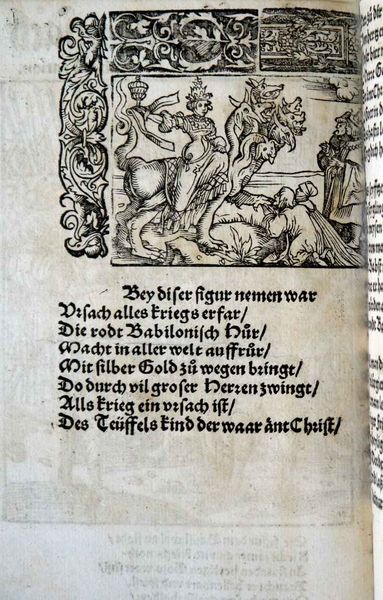 Bey diser figur nemen war
Ursach alles kriegs erfar/
Die rodt Babilonisch Hůr/
Macht in aller welt auffrůr/
Mit silber Gold zů wegen bringt/
Do durch vil groser Herren zwingt/
Alls krieg ein ursach ist/
Des Teüffels kind der waar änt Christ/